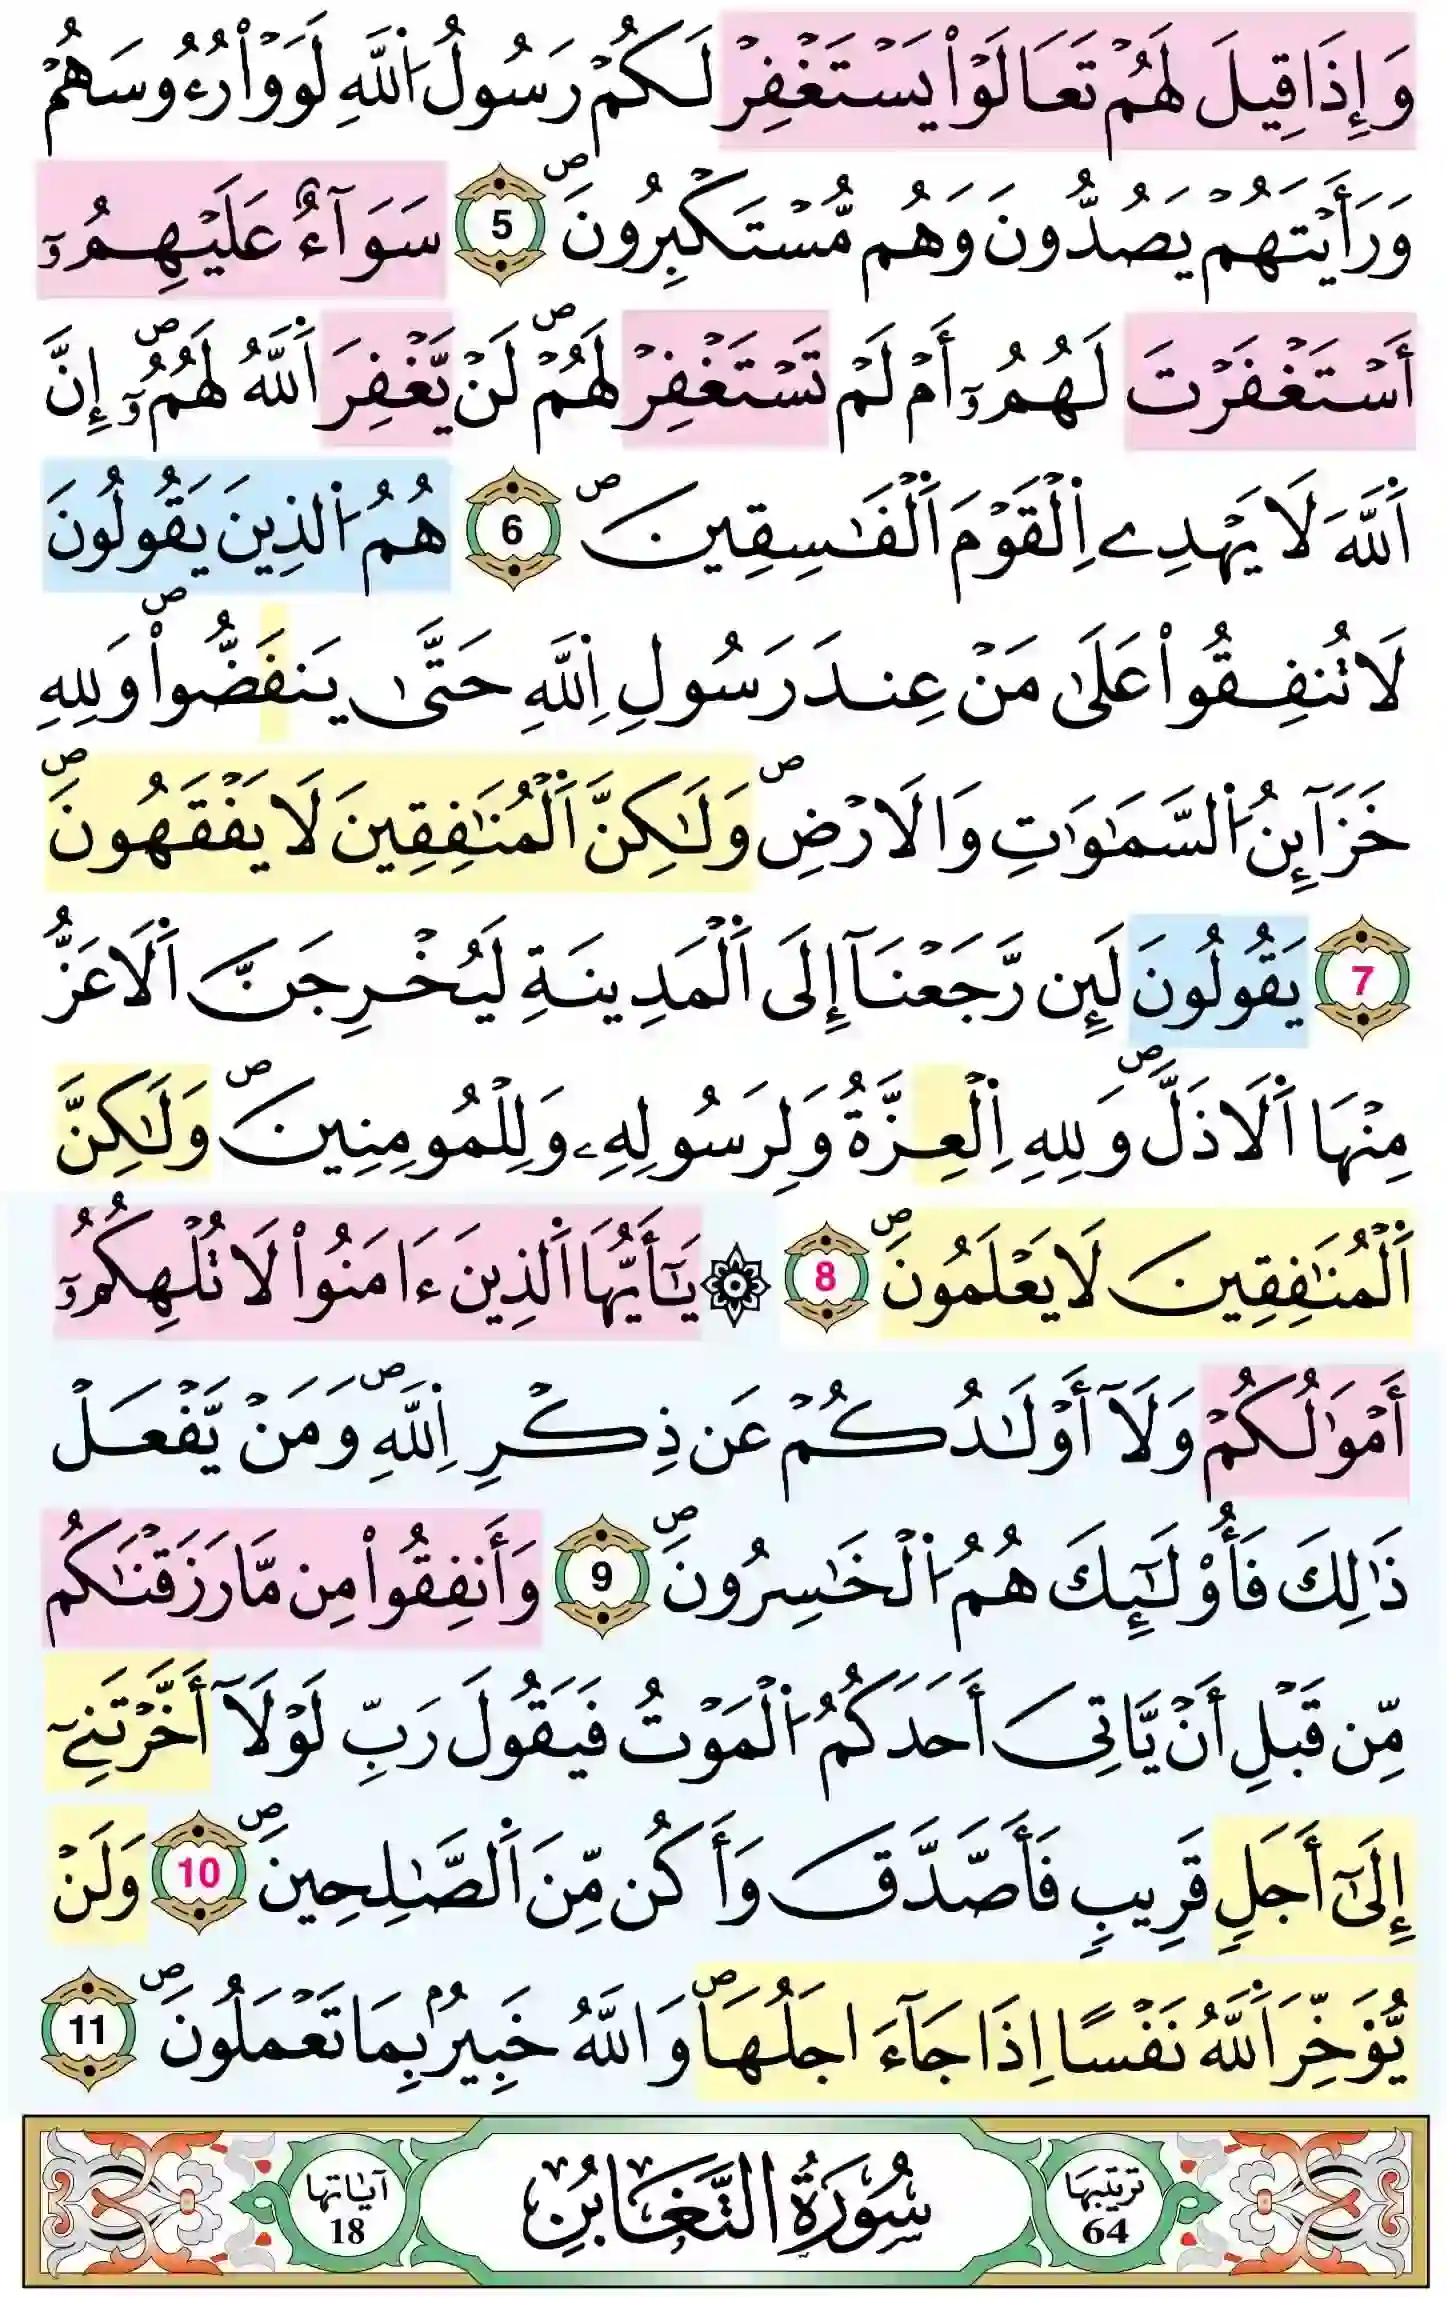 وَإِذَا قِيلَ لَهُمْ تَعَالَوْاْ يَسْتَغْفِرْ لَكُمْ رَسُولُ اُ۬للَّهِ لَوَوْاْ رُءُوسَهُمْ
وَرَأَيْتَهُمْ يَصُدُّونَ وَهُم مُّسْتَكْبِرُونَۖ 5 سَوَآءٌ عَلَيْهِمُۥٓ
أَسْتَغْفَرْتَ لَهُمُۥٓ أَمْ لَمْ تَسْتَغْفِرْ لَهُمْۖ لَنْ يَّغْفِرَ اَ۬للَّهُ لَهُمُۥٓۖ إِنَّ
اَ۬للَّهَ لَا يَهْدِے اِ۬لْقَوْمَ اَ۬لْفَٰسِقِينَۖ 6 هُمُ اُ۬لذِينَ يَقُولُونَ
لَا تُنفِقُواْ عَلَىٰ مَنْ عِندَ رَسُولِ اِ۬للَّهِ حَتَّىٰ يَنفَضُّواْۖ وَلِلهِ
خَزَآئِنُ اُ۬لسَّمَٰوَٰتِ وَالَارْضِۖ وَلَٰكِنَّ اَ۬لْمُنَٰفِقِينَ لَا يَفْقَهُونَۖ
7 يَقُولُونَ لَئِن رَّجَعْنَآ إِلَى اَ۬لْمَدِينَةِ لَيُخْرِجَنَّ اَ۬لَاعَزُّ
مِنْهَا اَ۬لَاذَلَّۖ وَلِلهِ اِ۬لْعِزَّةُ وَلِرَسُولِهِۦ وَلِلْمُومِنِينَۖ وَلَٰكِنَّ
اَ۬لْمُنَٰفِقِينَ لَا يَعْلَمُونَۖ 8 ۞ يَٰٓأَيُّهَا اَ۬لذِينَ ءَامَنُواْ لَا تُلْهِكُمُۥٓ
أَمْوَٰلُكُمْ وَلَآ أَوْلَٰدُكُمْ عَن ذِكْرِ اِ۬للَّهِۖ وَمَنْ يَّفْعَلْ
ذَٰلِكَ فَأُوْلَٰٓئِكَ هُمُ اُ۬لْخَٰسِرُونَۖ 9 وَأَنفِقُواْ مِن مَّا رَزَقْنَٰكُم
مِّن قَبْلِ أَنْ يَّاتِىَ أَحَدَكُمُ اُ۬لْمَوْتُ فَيَقُولَ رَبِّ لَوْلَآ أَخَّرْتَنِےٓ
إِلَىٰٓ أَجَلٍ قَرِيبٍ فَأَصَّدَّقَ وَأَكُن مِّنَ اَ۬لصَّٰلِحِينَۖ 10 وَلَنْ
يُّؤَخِّرَ اَ۬للَّهُ نَفْسًا اِذَا جَآءَ اجَلُهَاۖ وَاللَّهُ خَبِيرُۢ بِمَا تَعْمَلُونَۖ 11
ترتيبها
64
سُورَةُ التَّغَابُنِ
آياتها
18